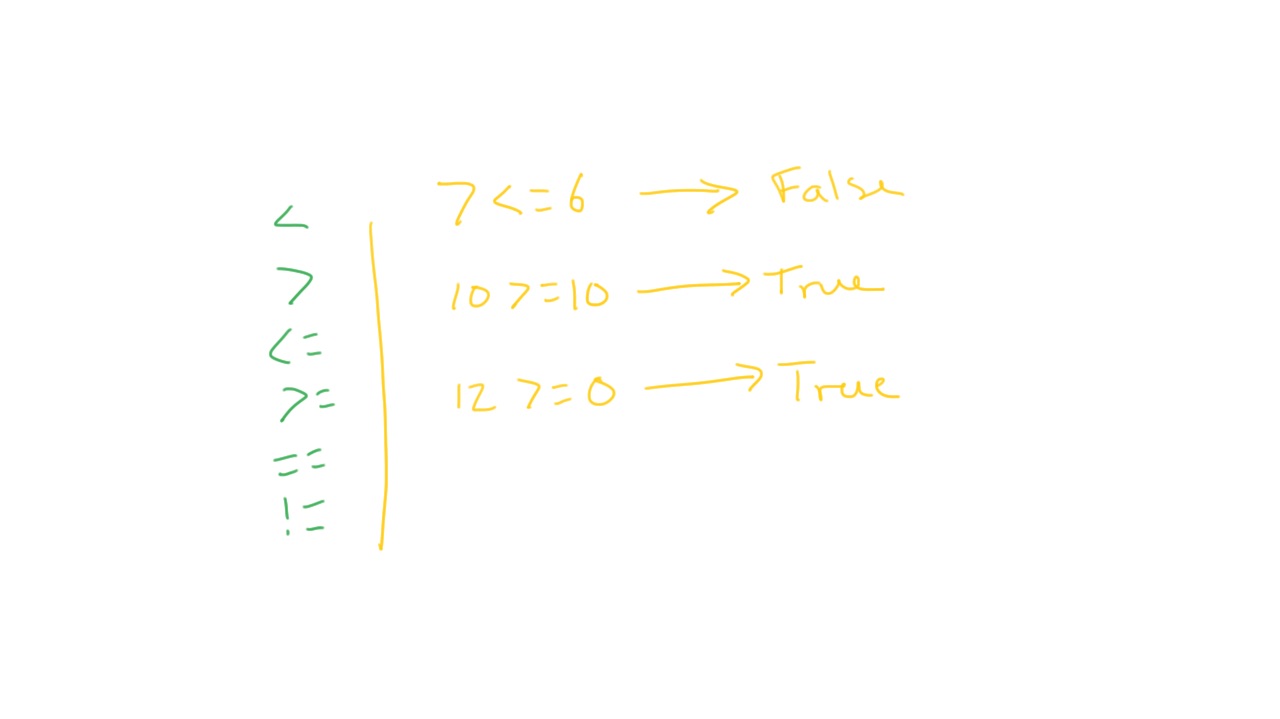 <
>
<=
>=
==
!=
7 <= 6 → False
10 >= 10 → True
12 >= 0 → True